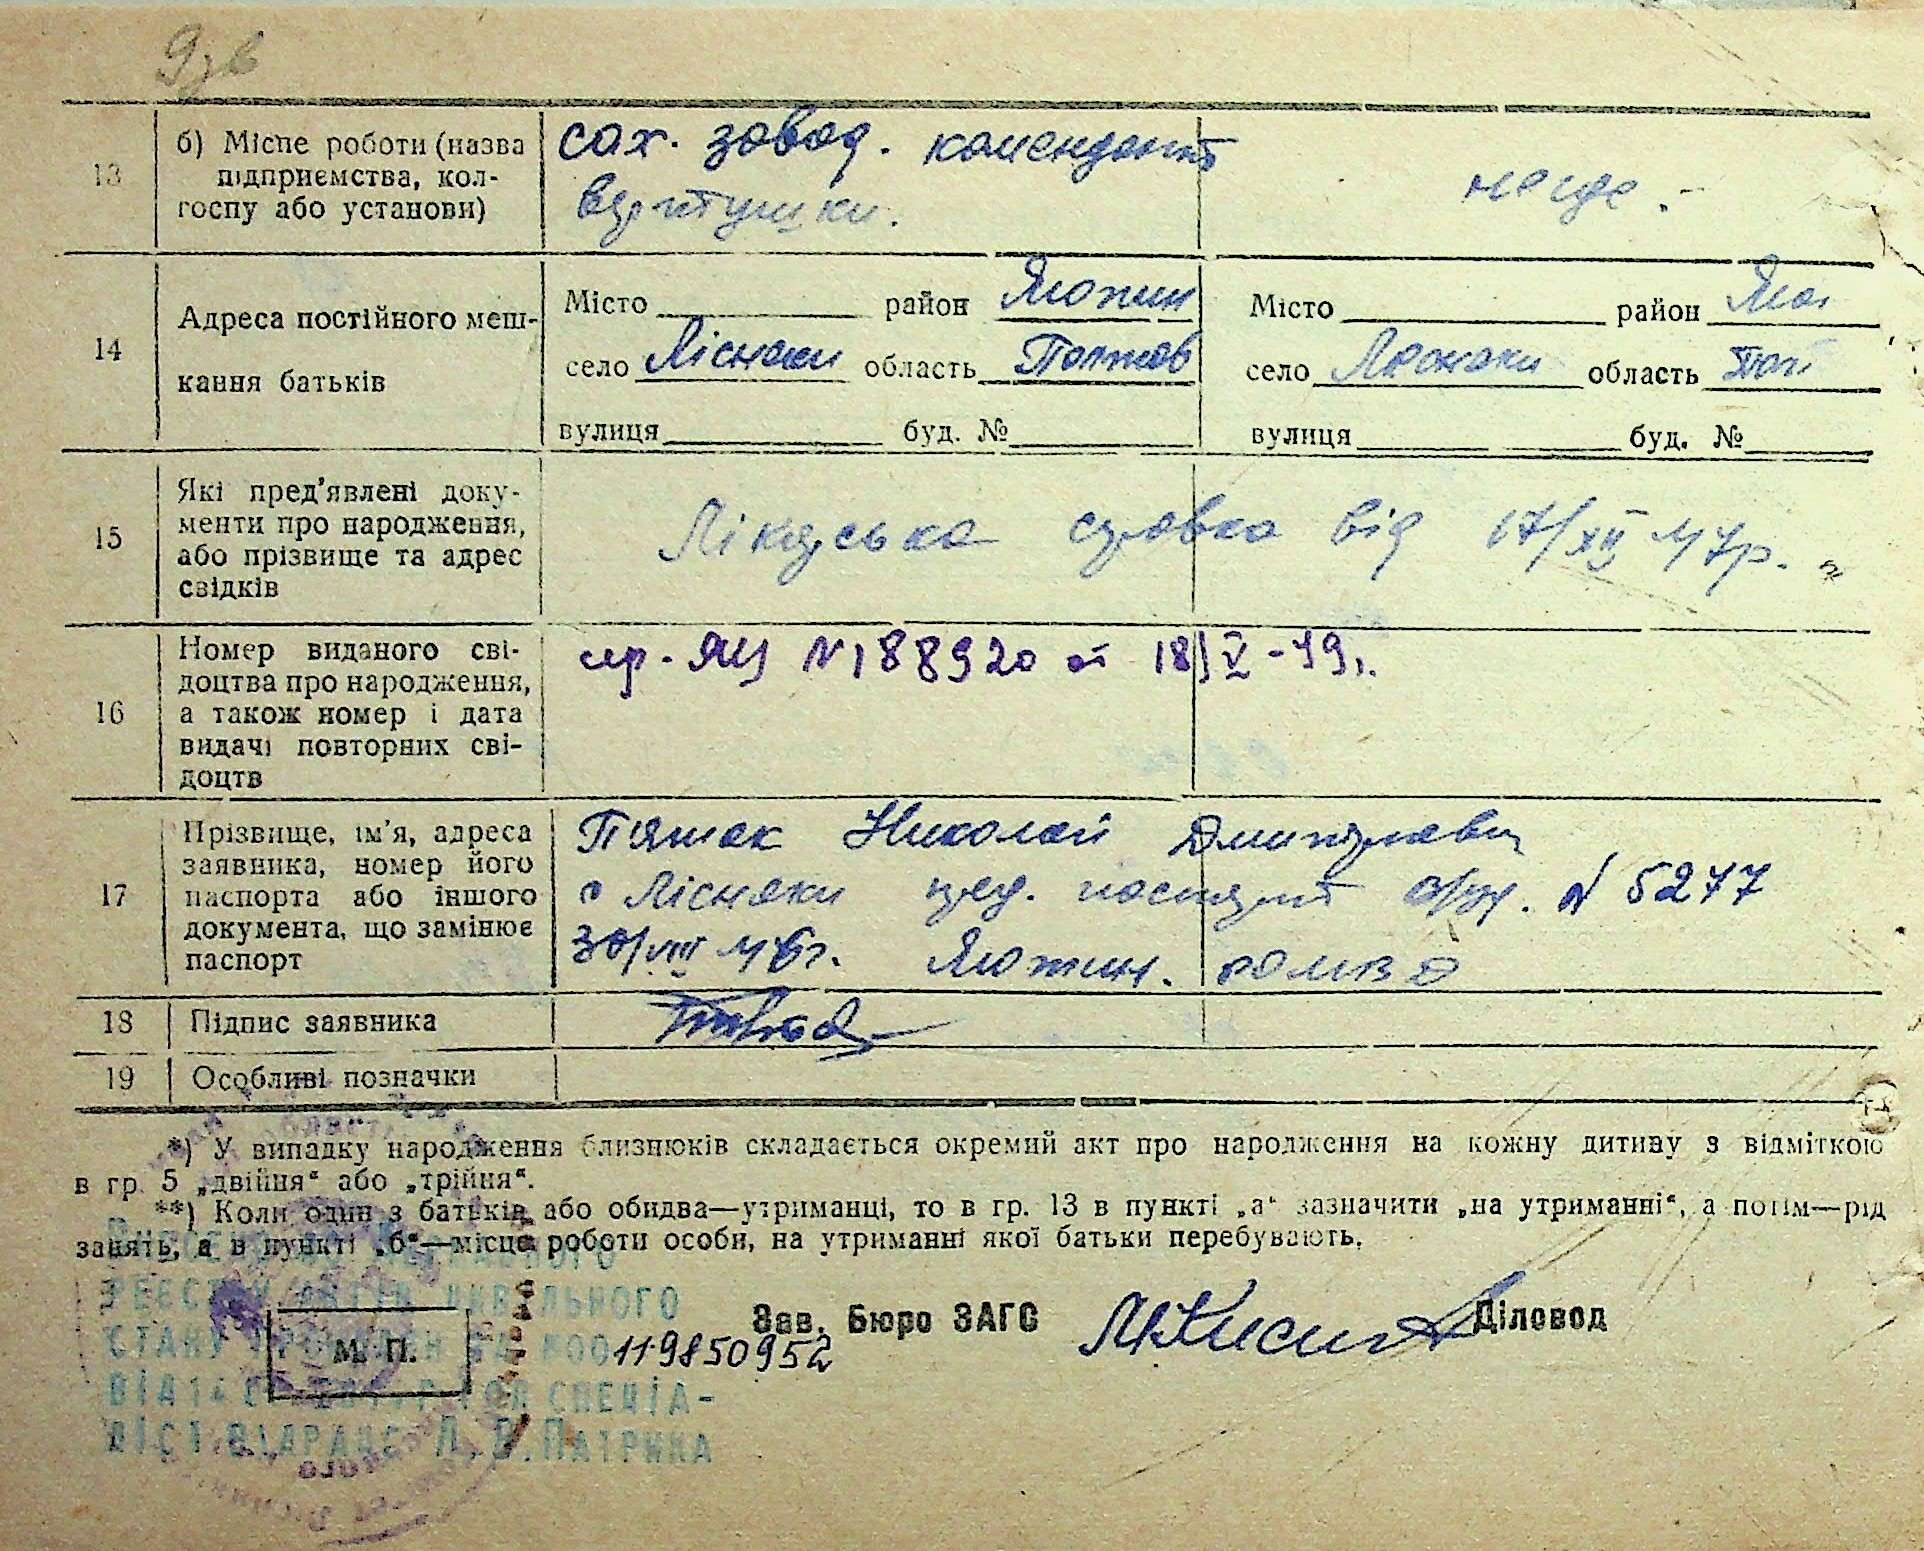 13 б) Місце роботи (назва підприємства, кол-
госпу або установи)
сах. завод. комендант
вертушки.
нэ где.-
14 Адреса постійного меш-
кання батьків
Місто район Яготин Місто район Яго
село Лісняки область Полтав село Лісняки область Пол
вулиця буд. № вулиця буд. №
15 Які пред'явлені доку-
менти про народження,
або прізвище та адрес
свідків
Лікарська справка від 17/XII 47р.
16 Номер виданого сві-
доцтва про народження,
а також номер і дата
видачі повторних сві-
доцтв
N 188920 от 18/V-49г.
17 Прізвище, ім'я, адреса
заявника, номер його
паспорта або іншого
документа, що замінює
паспорт
Николай Дмитрович
с Лісняки пред. паспорт N 5277
30/VIII 46г. Яготин.
18 Підпис заявника
19 Особливі позначки
*) У випадку народження близнюків складається окремий акт про народження на кожну дитину з відміткою
в гр. 5 „двійня“ або „трійня“.
**) Коли один з батьків або обидва—утриманці, то в гр. 13 в пункті „а“ зазначити „на утриманні“, а потім—рід
занять, а в пункті „б“—місце роботи особи, на утриманні якої батьки перебувають.
Зав. Бюро ЗАГС Діловод
М. П.
119850952
РЕЄСТРУ АКТІВ ЦИВІЛЬНОГО
СТАНУ
СПЕЦІА-
ЛІСТ ВІДРАЦС Л.В.ПАТРИКА